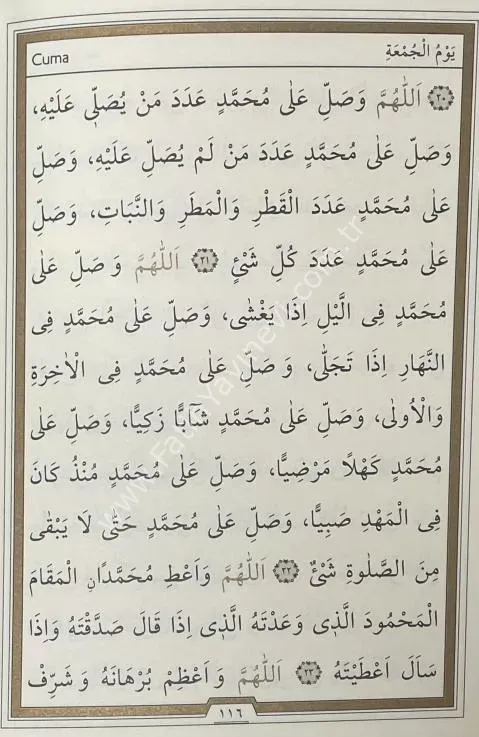 Cuma
يَوْمُ الْجُمْعَةِ
﴿٢٠﴾ اَللّٰهُمَّ وَصَلِّ عَلٰى مُحَمَّدٍ عَدَدَ مَنْ يُصَلّ۪ى عَلَيْهِ،
وَصَلِّ عَلٰى مُحَمَّدٍ عَدَدَ مَنْ لَمْ يُصَلِّ عَلَيْهِ، وَصَلِّ
عَلٰى مُحَمَّدٍ عَدَدَ الْقَطْرِ وَالْمَطَرِ وَالنَّبَاتِ، وَصَلِّ
عَلٰى مُحَمَّدٍ عَدَدَ كُلِّ شَىْءٍ ﴿٢١﴾ اَللّٰهُمَّ وَصَلِّ عَلٰى
مُحَمَّدٍ فِى الَّيْلِ اِذَا يَغْشٰى، وَصَلِّ عَلٰى مُحَمَّدٍ فِى
النَّهَارِ اِذَا تَجَلّٰى، وَصَلِّ عَلٰى مُحَمَّدٍ فِى الْاٰخِرَةِ
وَالْاُولٰى، وَصَلِّ عَلٰى مُحَمَّدٍ شَآبًّا زَكِيًّا، وَصَلِّ عَلٰى
مُحَمَّدٍ كَهْلًا مَرْضِيًّا، وَصَلِّ عَلٰى مُحَمَّدٍ مُنْذُ كَانَ
فِى الْمَهْدِ صَبِيًّا، وَصَلِّ عَلٰى مُحَمَّدٍ حَتّٰى لَا يَبْقٰى
مِنَ الصَّلٰوةِ شَىْءٌ ﴿٢٢﴾ اَللّٰهُمَّ وَاَعْطِ مُحَمَّدًانِ الْمَقَامَ
الْمَحْمُودَ الَّذ۪ى وَعَدْتَهُ الَّذ۪ى اِذَا قَالَ صَدَّقْتَهُ وَاِذَا
سَاَلَ اَعْطَيْتَهُ ﴿٢٣﴾ اَللّٰهُمَّ وَاَعْظِمْ بُرْهَانَهُ وَشَرِّفْ
١١٦